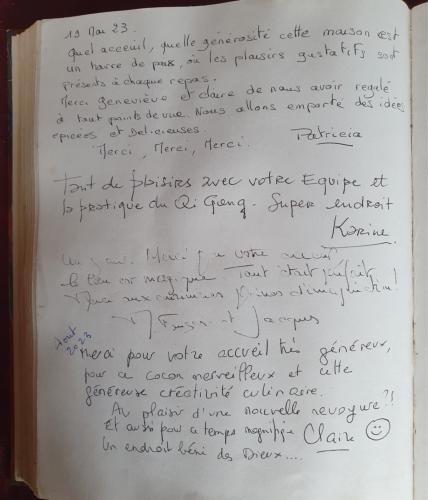 19 Mai 23
Quel acceuil, quelle générosité cette maison est
un havre de paix, ou les plaisirs gustatifs sont
présents à chaque repas.
Merci Geneviève et Claire de nous avoir regalé
à tout points de vue. Nous allons emporté des idées
épicées et Delicieuses.
Merci, Merci, Merci.
Patricia
Tant de plaisirs avec votre Equipe et
la pratique du Qi Gong. Super endroit
Karine
Merci votre accueil
le lieu est magique Tout était parfait
et Jacques
Aout 2023
Merci pour votre accueil très généreux,
pour ce cocon merveilleux et cette
généreuse créativité culinaire.
Au plaisir d'une nouvelle revoyure?!
Et aussi pour ce temps magnifique Claire
Un endroit béni des Dieux....